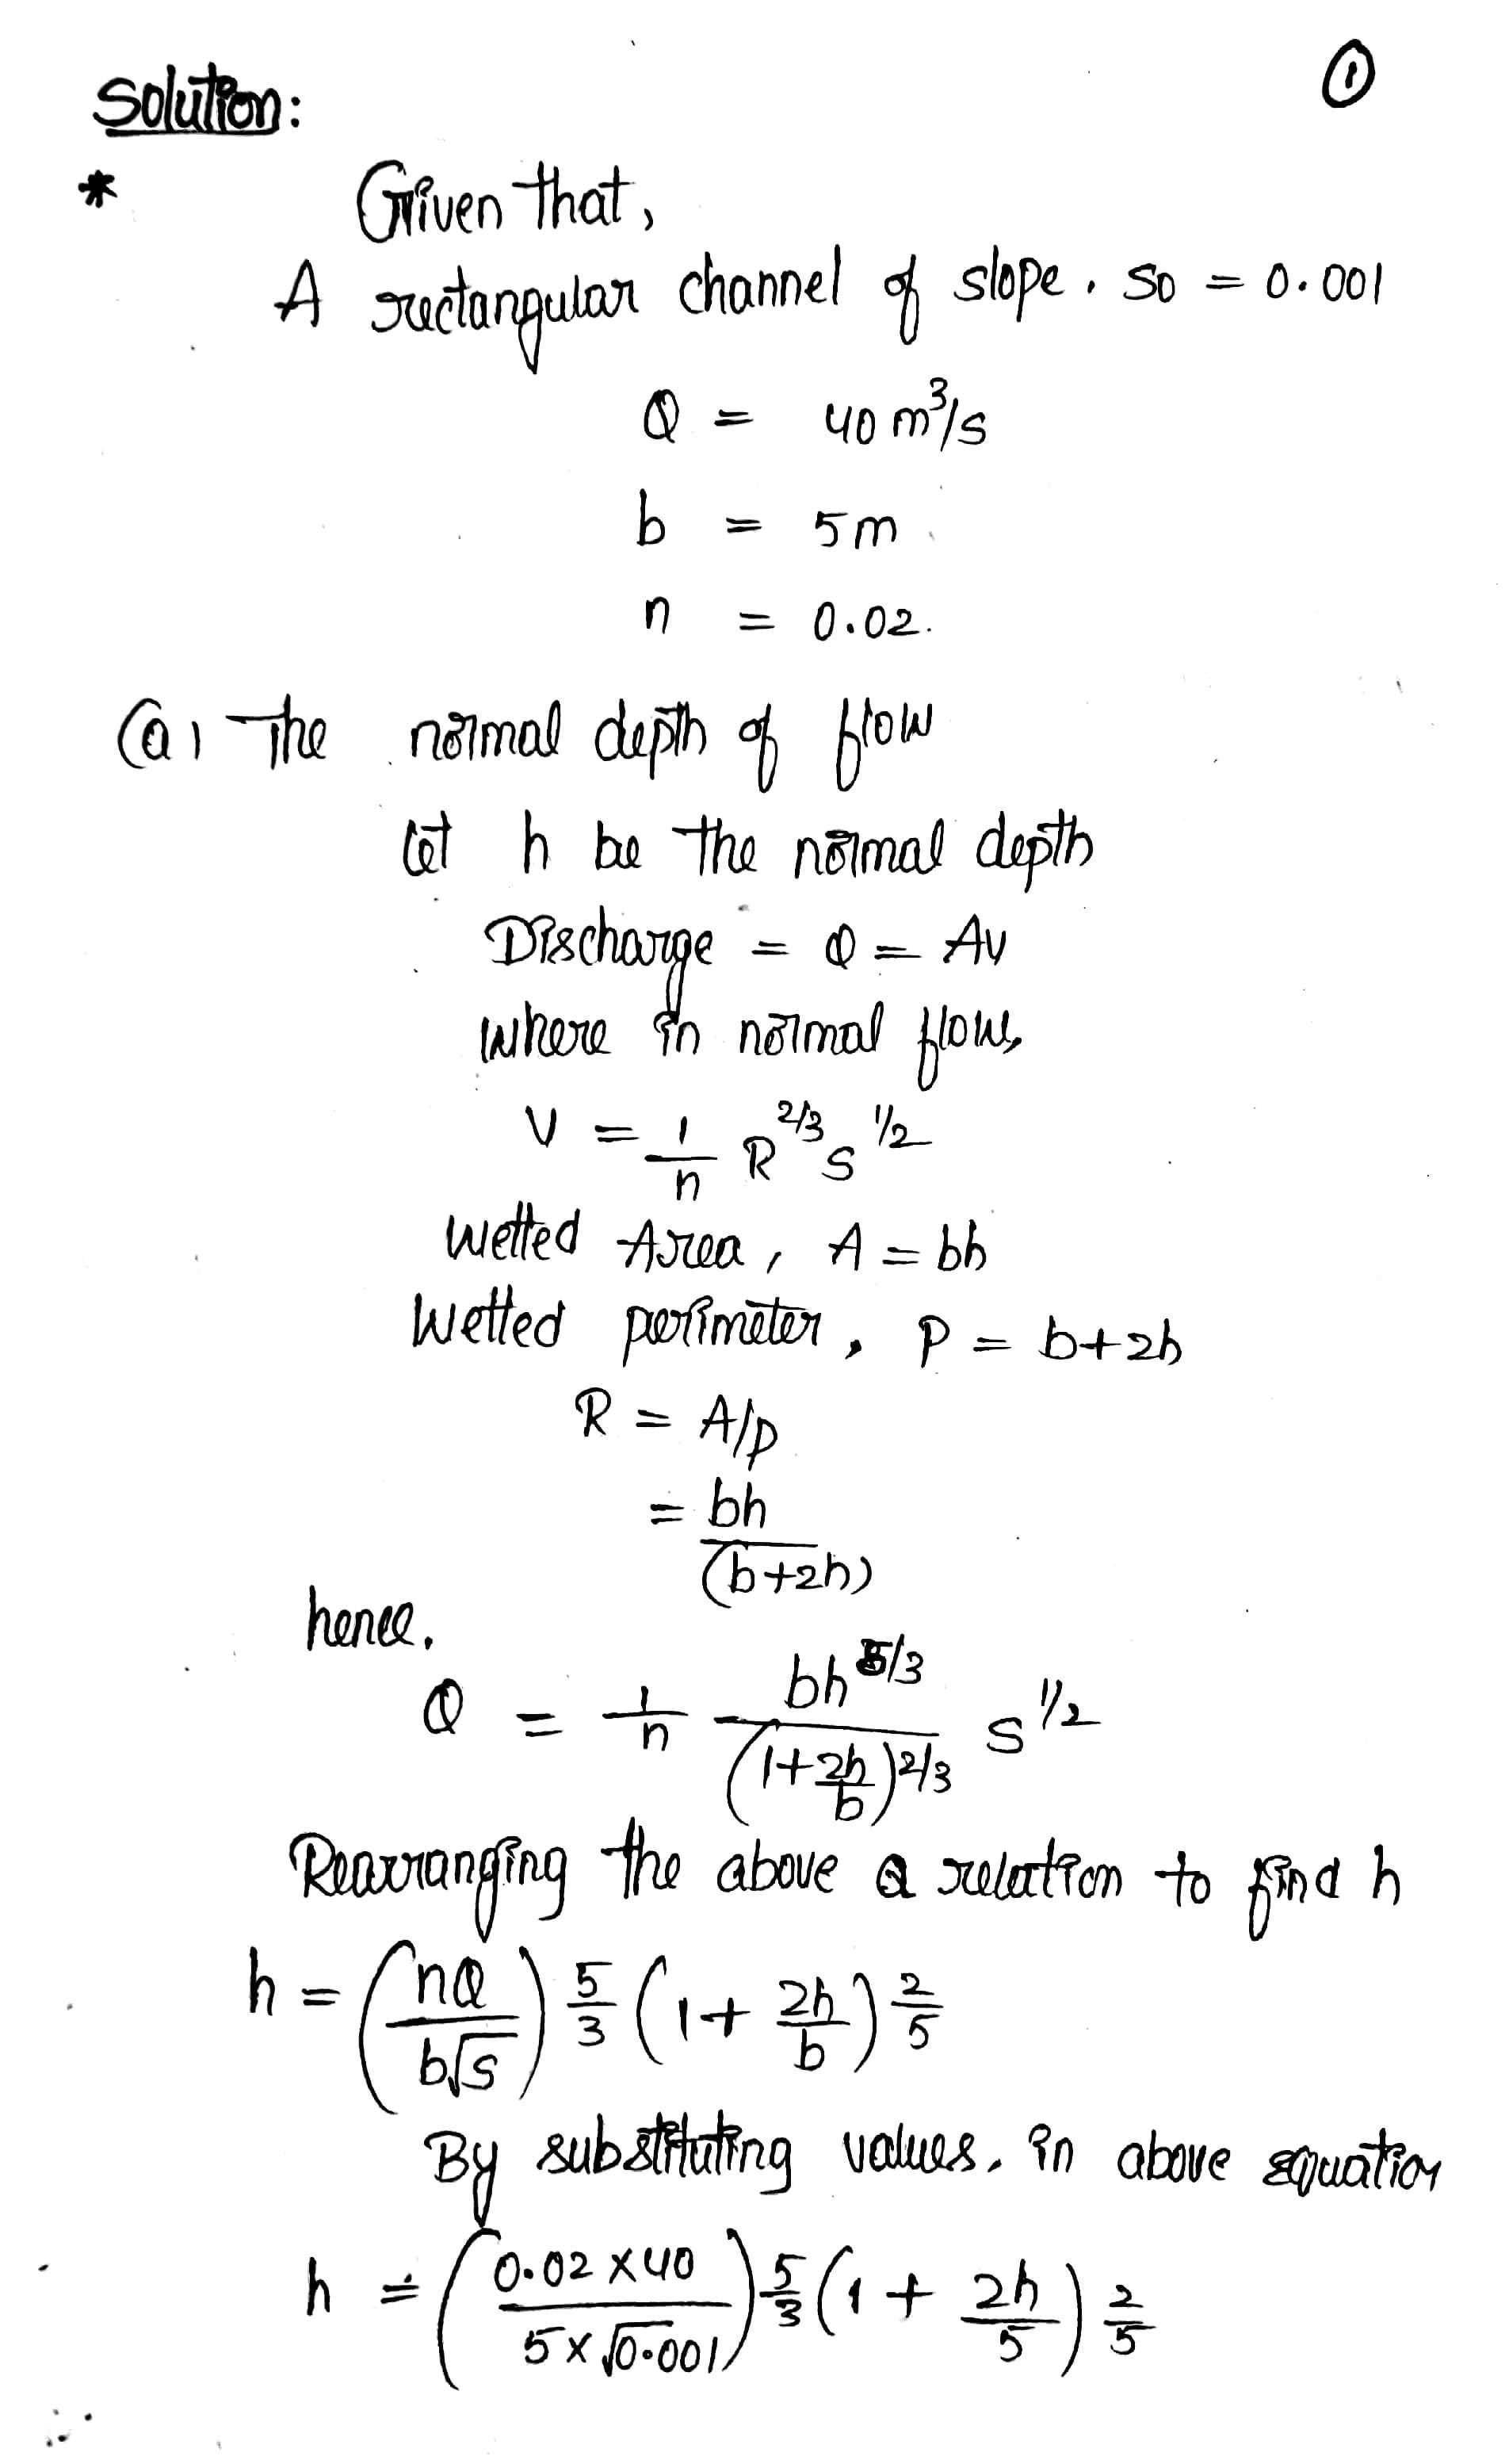 ①
Solution:
* Given that,
A rectangular channel of slope, S0 = 0.001
Q = 40 m³/s
b = 5m
n = 0.02.
(a) The normal depth of flow
let h be the normal depth
Discharge = Q = AV
where in normal flow,
V = 1/n R^2/3 S^1/2
wetted Area, A = bh
Wetted perimeter, P = b+2h
R = A/P
= bh/(b+2h)
hence,
Q = 1/n bh^5/3/(1+2h/b)^2/3 S^1/2
Rearranging the above Q relation to find h
h = (nQ/b√S)^5/3 (1+ 2h/b)^2/5
By substituting values, in above equation
h = (0.02 x 40/5 x √0.001)^5/3 (1 + 2h/5)^2/5